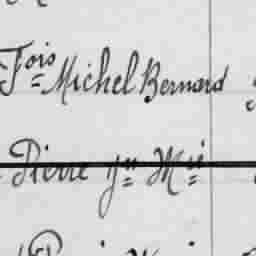 Fois Michel Bernard
Pierre Yves Mie